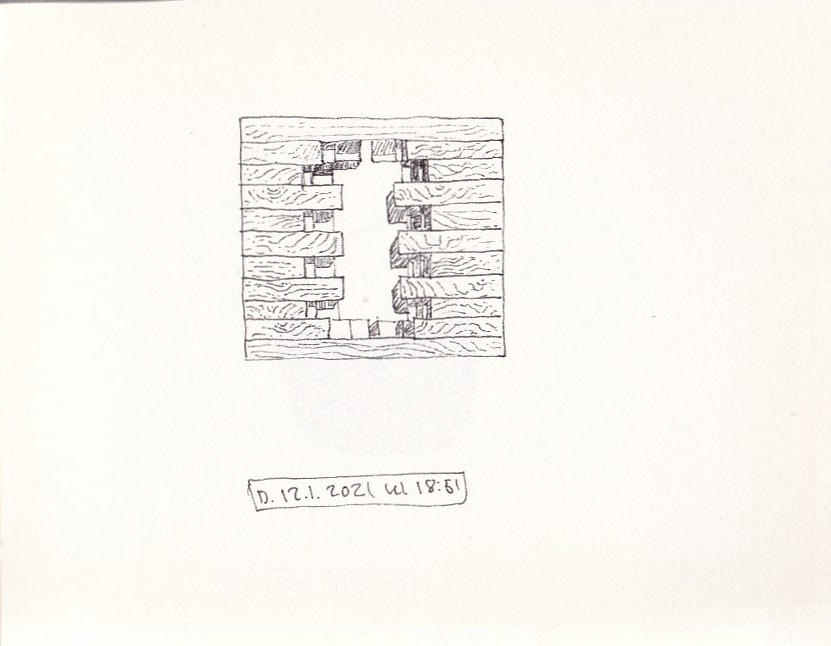 D. 12.1. 2021 kl 18:51